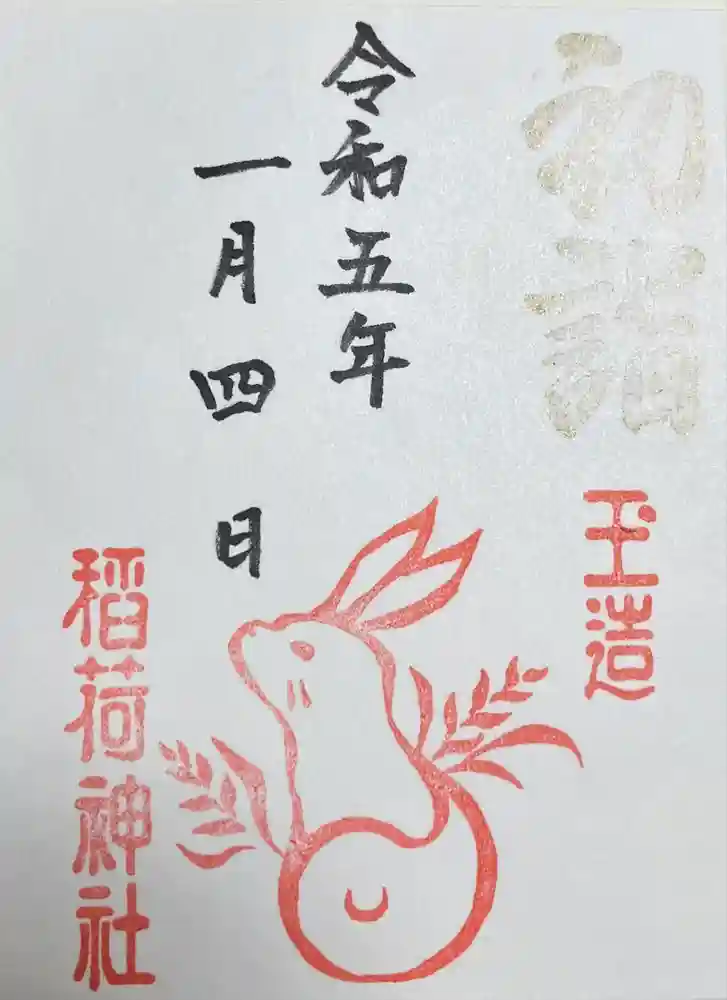 初詣
玉造
令和五年
一月四日
稲荷神社